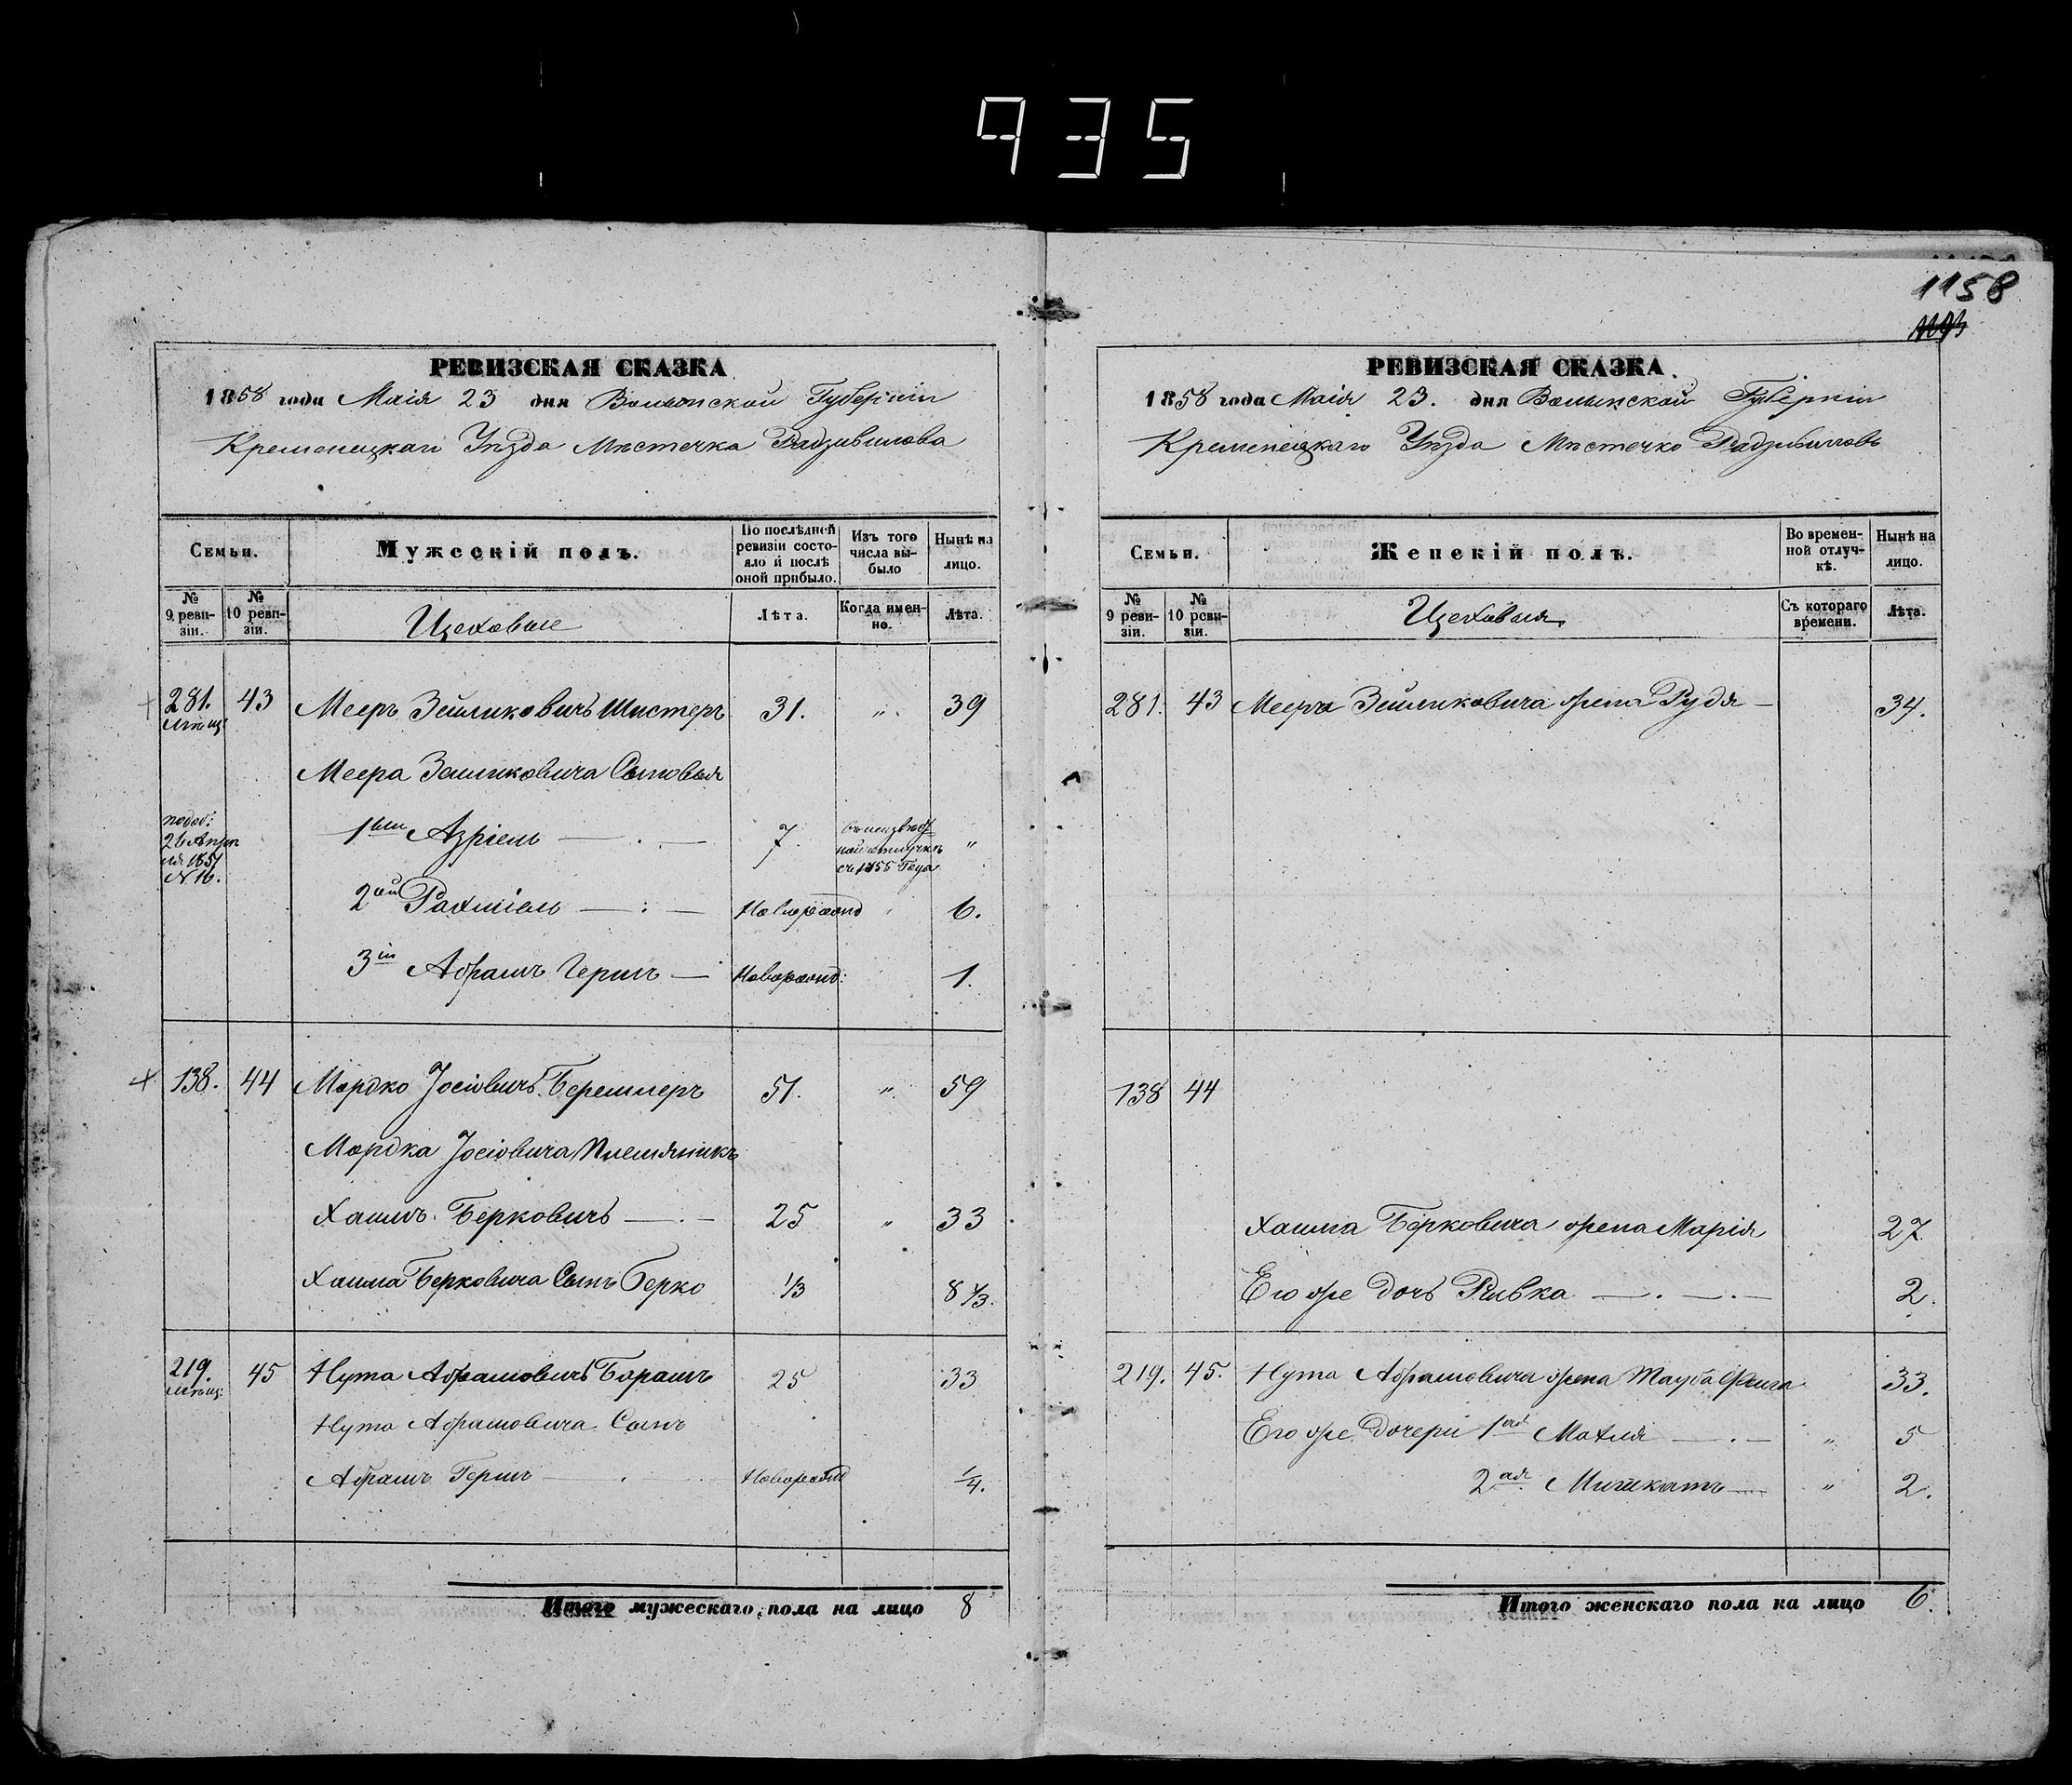 935
1158
РЕВИЗСКАЯ СКАЗКА
1858 года Маія 23 дня Волынской Губерніи
Кременецкаго Уѣзда Мѣстечка Радзивилова
Семьи.
Мужескій полъ.
По послѣдней ревизіи состояло и послѣ оной прибыло.
Изъ того числа выбыло
Нынѣ на лицо.
№ 9 ревизіи.
№ 10 ревизіи.
Цеховые
Лѣта.
Когда именно.
Лѣта.
281. 43 Мееръ Зейликовичъ Шистеръ 31. " 39
мѣщ
Меера Зейликовича Сыновья
1вый Азріель — . — 7 въ неизвѣстной отлучкѣ съ 1855 Года "
2ой Рахміель — : — Новорожд 6.
3ій Абрамъ Гершъ — Новорожд: 1.
26 Апрѣля 1851 N 16.
138. 44 Мордко Іосіовичъ Берешперъ 51. " 59
Мордка Іосіовича Племяникъ
Хаимъ Берковичъ — . — 25 " 33
Хаима Берковича Сынъ Берко 1/3 8 1/3.
219. 45 Нута Абрамовичъ Борашъ 25 33
мѣщ:
Нута Абрамовича Сынъ
Абрамъ Гершъ — . — Новорожд 1/4.
Итого мужескаго пола на лицо 8
РЕВИЗСКАЯ СКАЗКА.
1858 года Маія 23. дня Волынской Губерніи
Кременецкаго Уѣзда Мѣстечко Радзивиловъ
Семьи.
Женскій полъ.
Во временной отлучкѣ.
Нынѣ на лицо.
№ 9 ревизіи.
№ 10 ревизіи.
Цеховыя
Съ котораго времени.
Лѣта.
281. 43 Меера Зейликовича жена Рудя — 34.
138 44
Хаима Берковича жена Марія 27
Его же дочь Ривка — . — . — 2.
219. 45. Нута Абрамовича жена Тауба Фейга 33.
Его же дочери 1ая Матля — . — " 5
2ая Минкатъ — " 2.
Итого женскаго пола на лицо 6.